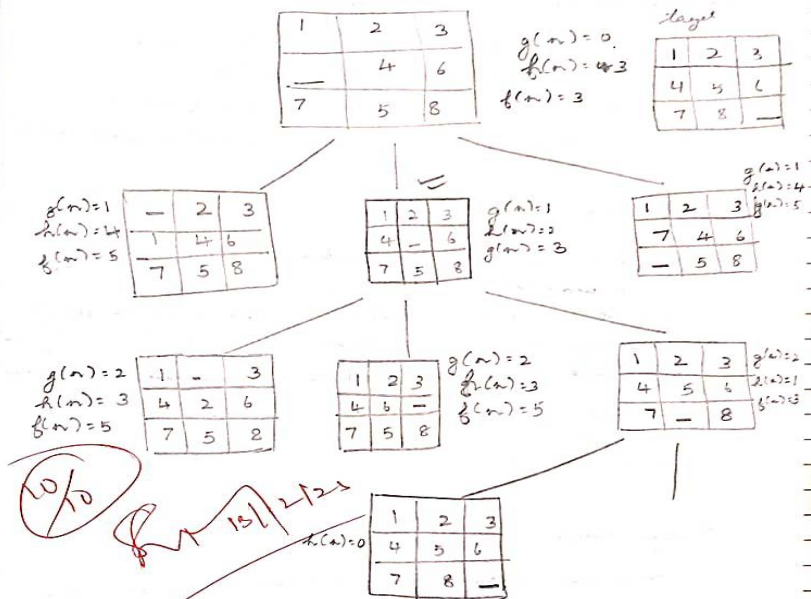 target
1 2 3
_ 4 6
7 5 8
g(n)=0.
h(n)=3
f(n)=3
1 2 3
4 5 6
7 8 _
g(n)=1
h(n)=4
f(n)=5
_ 2 3
1 4 6
7 5 8
1 2 3
4 _ 6
7 5 8
g(n)=1
h(n)=2
g(n)=3
1 2 3
7 4 6
_ 5 8
g(n)=1
h(n)=4
g(n)=5
g(n)=2
h(n)=3
f(n)=5
1 - 3
4 2 6
7 5 8
1 2 3
4 6 -
7 5 8
g(n)=2
h(n)=3
f(n)=5
1 2 3
4 5 6
7 _ 8
g(n)=2
h(n)=1
f(n)=3
10/10
h(n)=0
1 2 3
4 5 6
7 8 _